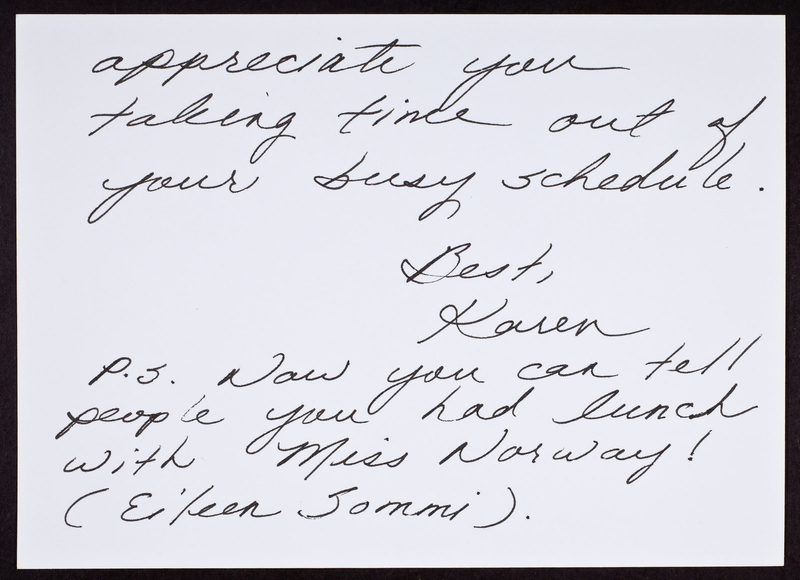 appreciate you
taking time out of
your busy schedule.
Best,
Karen
P.S. Now you can tell
people you had lunch
with Miss Norway!
(Eileen Sommi).